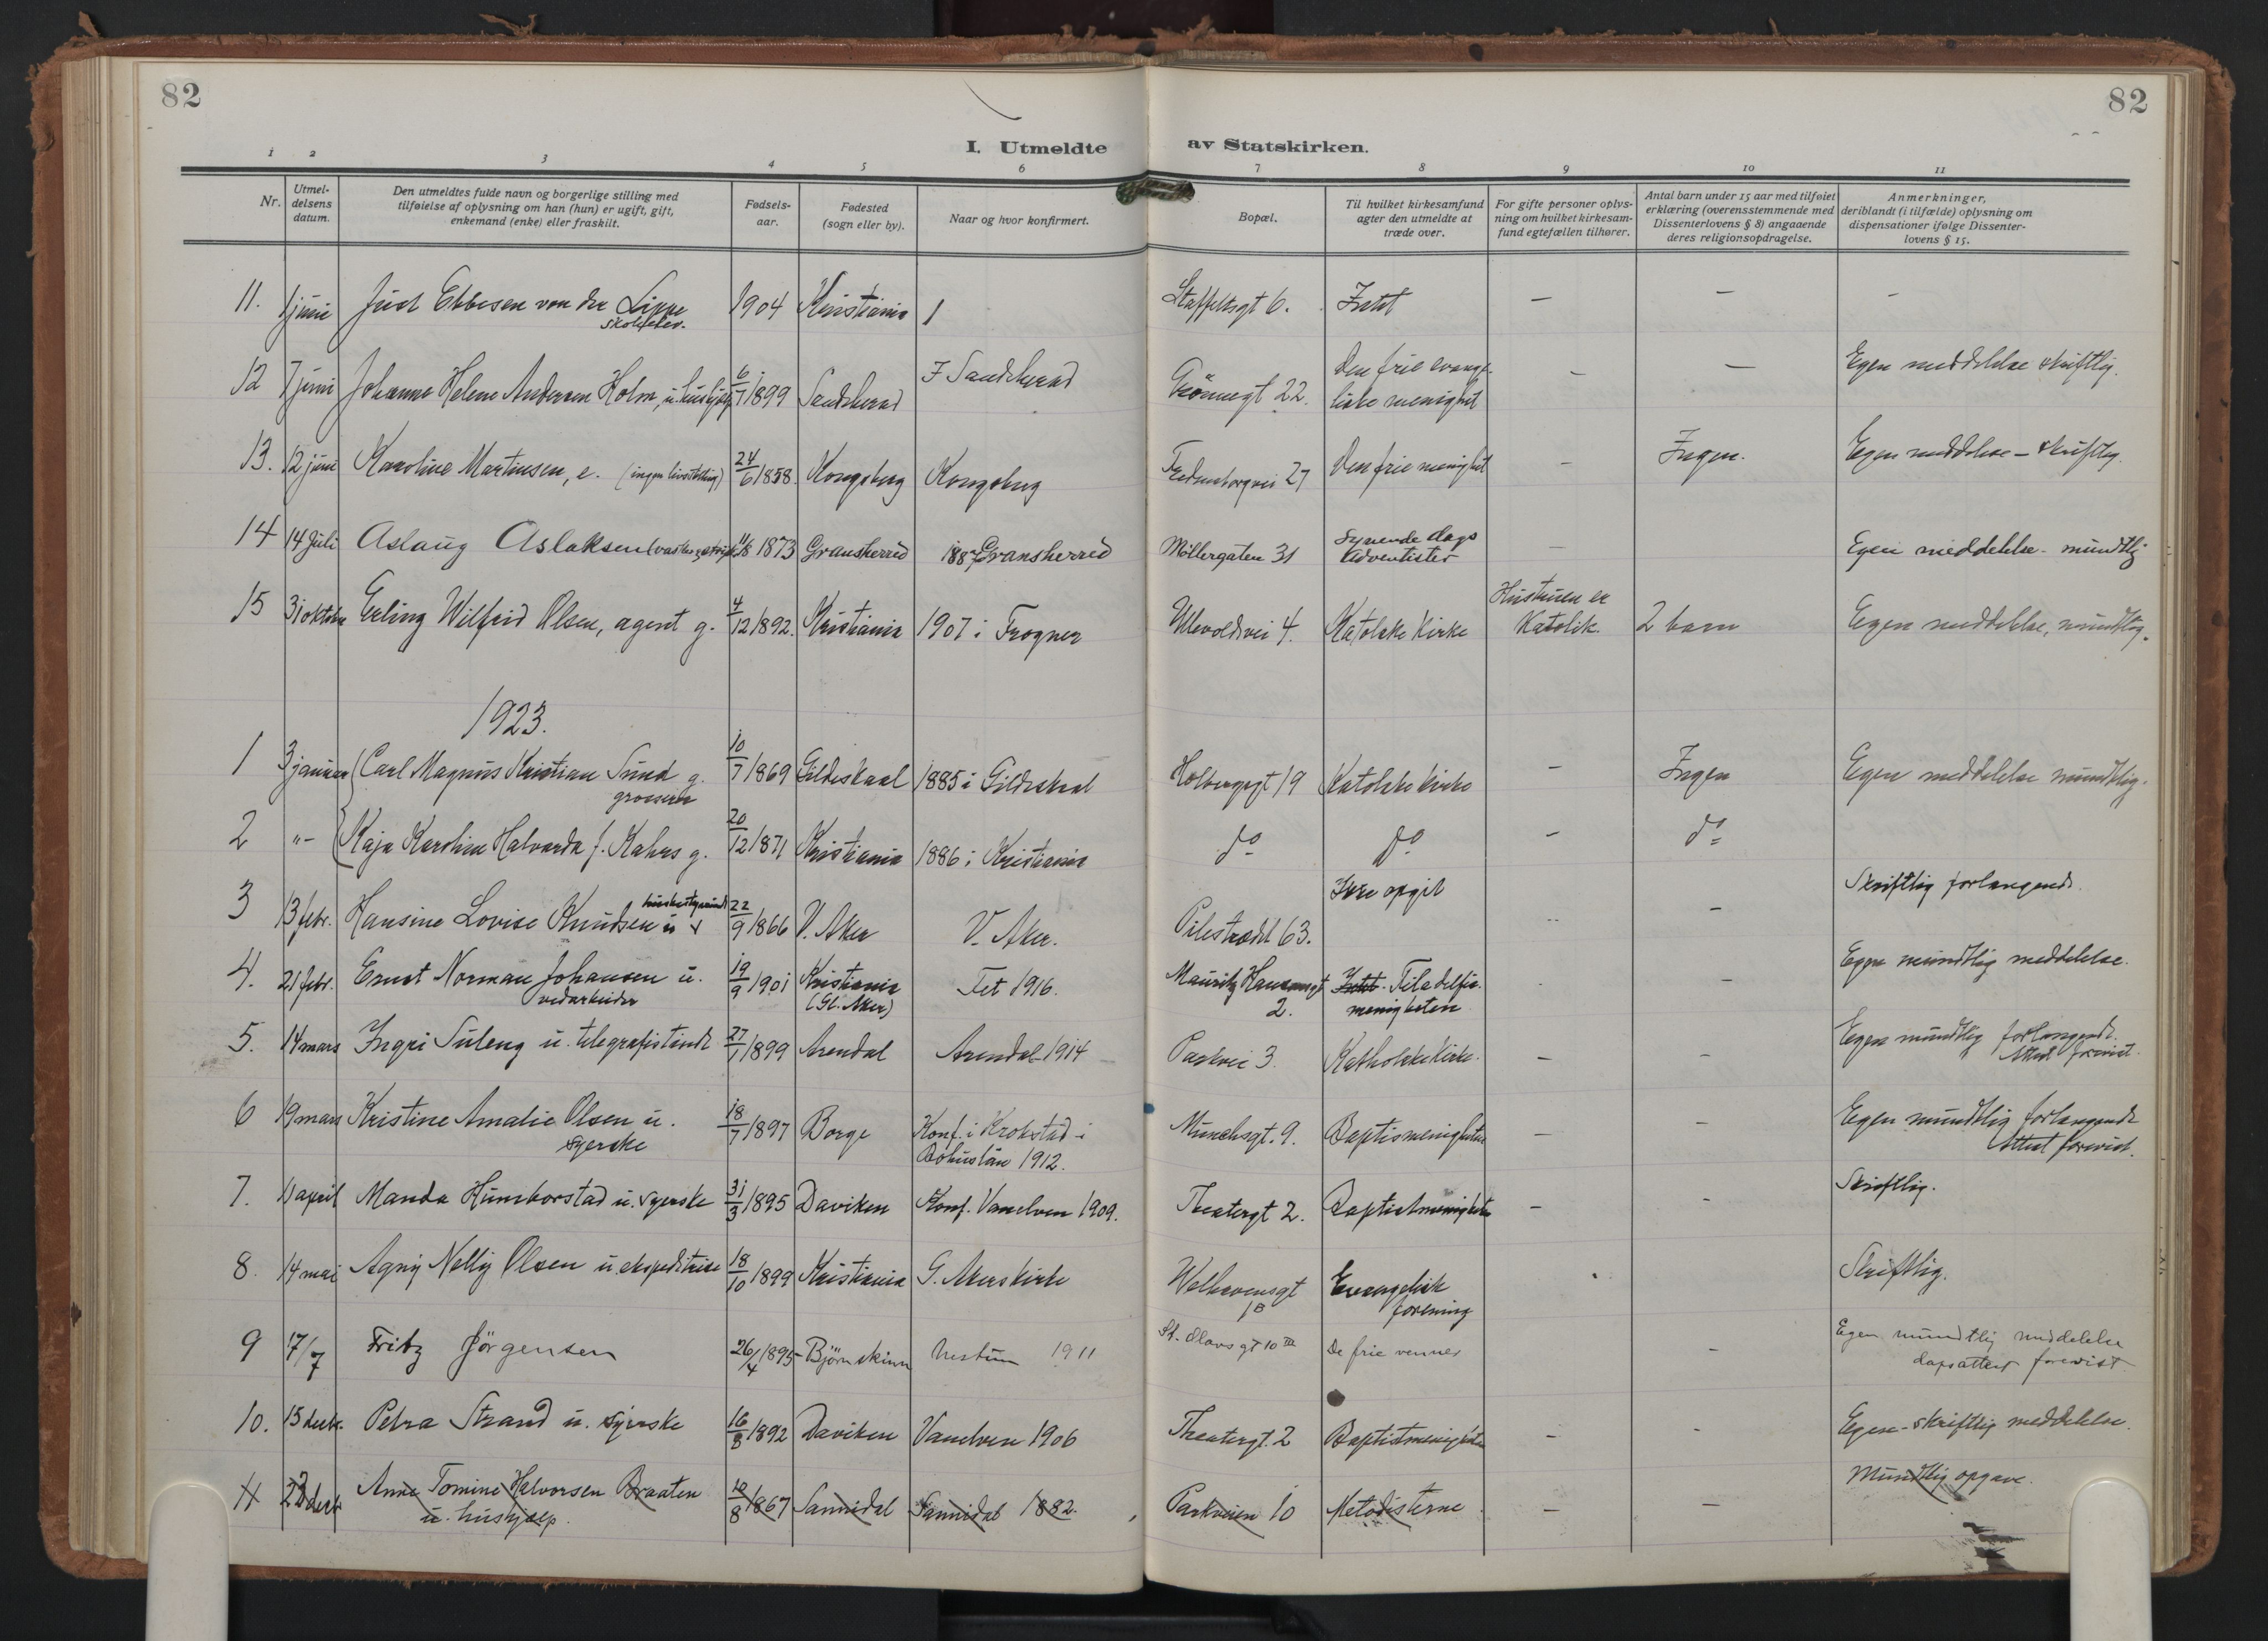 82
82
I. Utmeldte av Statskirken.
1 2 3 4 5 6 7 8 9 10 11
Nr.
Utmel-
delsens
datum.
Den utmeldtes fulde navn og borgerlige stilling med
tilføielse af oplysning om han (hun) er ugift, gift,
enkemand (enke) eller fraskilt.
Fødsels-
aar.
Fødested
(sogn eller by).
Naar og hvor konfirmert.
Bopæl.
Til hvilket kirkesamfund
agter den utmeldte at
træde over.
For gifte personer oplys-
ning om hvilket kirkesam-
fund egtefællen tilhører.
Antal barn under 15 aar med tilføiet
erklæring (overensstemmende med
Dissenterlovens § 8) angaaende
deres religionsopdragelse.
Anmerkninger,
deriblandt (i tilfælde) oplysning om
dispensationer ifølge Dissenter-
lovens § 15.
11. 1 juni Just Ebbesen von der Lippe 1904 Kristiania / Staffeltsgt 6. Intet — — -
skoleelev.
12 7 juni Johanne Helene Andersen Holm, u. hushjelp 6/7 1899 Sandeherad I Sandeherad Grønnegt 22. Den frie evange- - — Egen meddelelse skriftlig.
liske menighet
13. 12 juni Karoline Martinsen, e. (ingen livsstilling) 24/6 1858. Kongsberg Kongsberg 27 Den frie menighet - Ingen. Egen meddelelse - skriftlig.
14 14 Juli Aslaug Aslaksen 11/8 1873 Gransherred Gransherred Møllergaten 31 Syvende dags — Egen meddelelse - mundtlig
Adventister
15 31 oktober Erling Wilfrid Olsen, agent g. 4/12 1892. Kristiania 1907 i Frogner Ullevoldsvei 4. Katolske Kirke Hustruen er 2 barn Egen meddelelse, mundtlig.
Katolik.
1923.
1 3 januar Carl Magnus Kristian Sund g. 10/7 1869 Gildeskaal 1885 i Gildeskaal Holbergsgt 19 Katolske kirke - Ingen Egen meddelelse mundtlig.
grosserer
2 "- Kaja Karoline Halvarda f. Kahrs g. 20/12 1871 Kristiania 1886 i Kristiania do do - do
3 13 febr. Hansine Lovise Knudsen u 22/9 1866 V. Aker V. Aker. Pilestrædet 63. Ikke opgit - - Skriftlig forlangende.
4. 21 febr. Ernst Norman Johansen u. 19/9 1901 Kristiania Fet 1916. Mauritz Hansensgt Intet. Filadelfia - - Egen mundtlig meddelelse.
vedarbeider (Gl. Aker) 2. menigheten
5. 14 mars Ingri Suleng u. telegrafistinde 27/1 1899 Arendal Arendal 1914 Parkvei 3. Katholske Kirke. - - Egen mundtlig forlangende.
Attest forevist.
6 19 mars Kristine Amalie Olsen u. 18/7 1897 Borge Konf. i Krokstad i Munchsgt. 9. Baptismenigheten - - Egen mundtlig forlangende
syerske Bohuslän 1912. Attest forevist.
7. 11 april Manda Humborstad u. syerske 31/3 1895 Daviken Konf. Vanelven 1909. Theatergt 2. Baptistmenigheten - - Skriftlig.
8. 14 mai Agny Nelly Olsen u. ekspeditrise 18/10 1899 Kristiania G. Akers kirke Welhavensgt Evangelisk Skriftlig.
1B forening
9 17/7 Fritz Jörgensen 26/4 1895 Björnskinn 1911 St. Olavs gt 10 III De frie venner - Egen mundtlig meddelelse
dapsattest forevist
10. 15 decbr. Petra Strand u. syerske 16/8 1892 Daviken Vanelven 1906 Theatergt. 2 Baptistmenigheten - - Egen - skriftlig meddelelse.
11 22 decbr Anne Tomine Halvorsen Braaten 10/8 1867 Sannidal Sannidal 1882. Parkveien 10 Metodisterne — — Mundtlig opgave.
u. hushjælp.